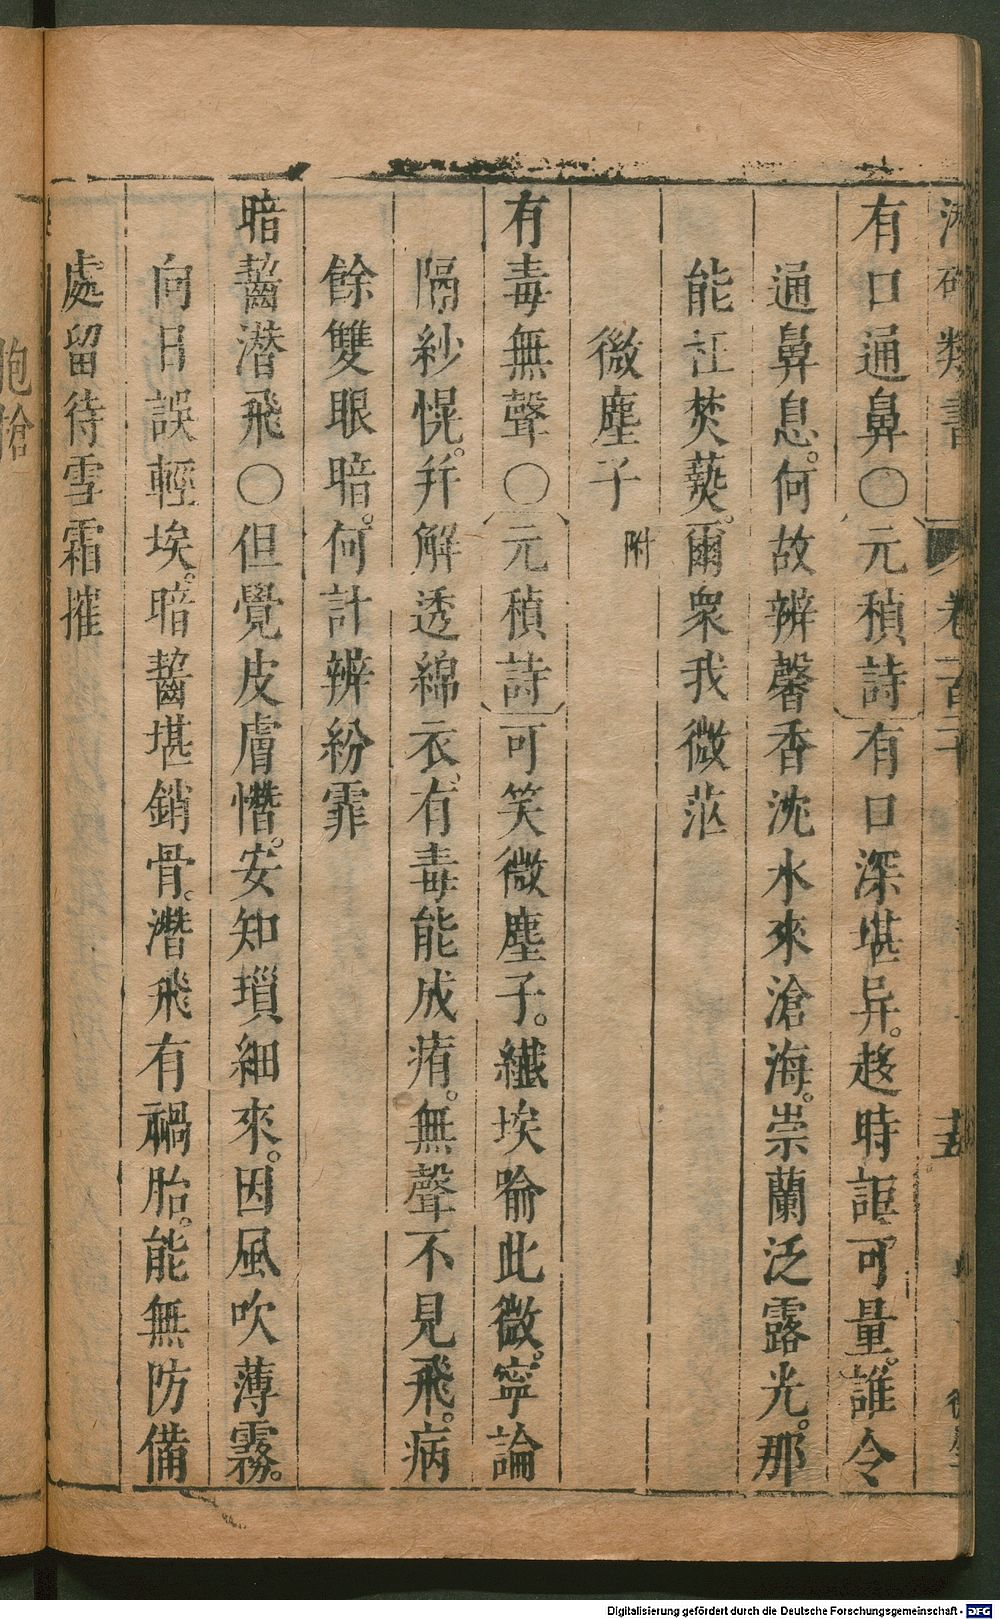 類書 卷百二十
有口通鼻○元稹詩有口深堪异。趍時詎可量。誰令
通鼻息。何故辨馨香沈水來滄海。崇蘭泛露光。那
能江焚爇。爾眾我微茫
微塵子 附
有毒無聲○元稹詩可笑微塵子。纖埃喻此微。寧論
隔紗幌。幷解透綿衣。有毒能成痏。無聲不見飛。病
餘雙眼暗。何計辨紛霏
暗齧潛飛○但覺皮膚憯。安知瑣細來。因風吹薄霧。
向日誤輕埃。暗齧堪銷骨。潛飛有禍胎。能無防備
處留待雪霜摧
Digitalisierung gefördert durch die Deutsche Forschungsgemeinschaft - DFG